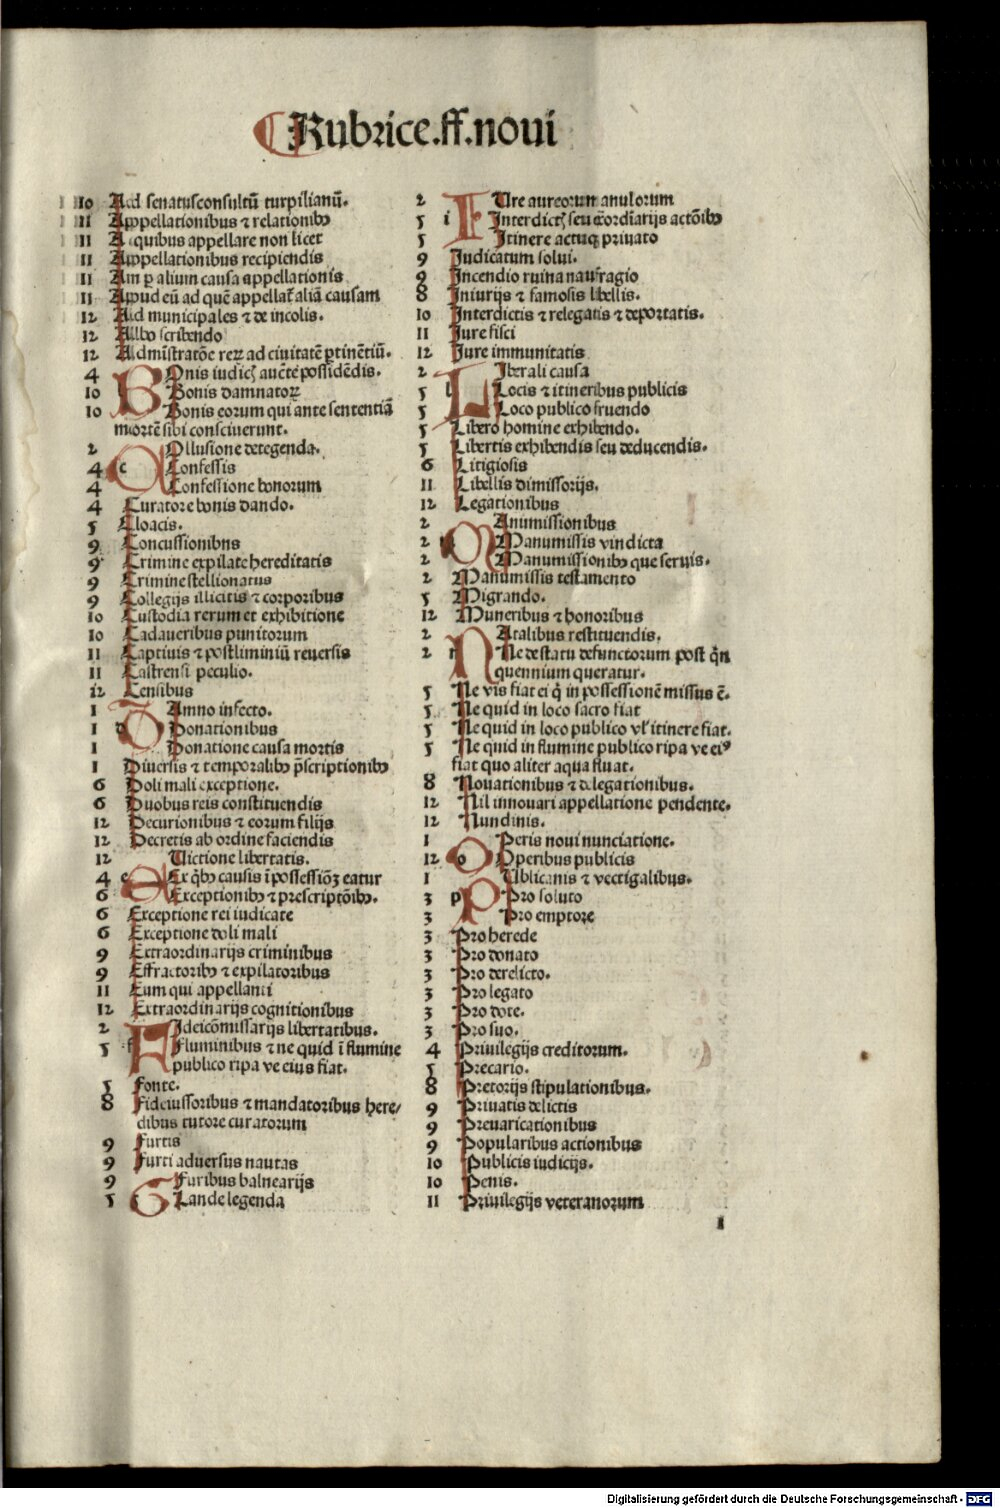 Rubrice.ff.noui
10 Ad senatusconsultū turpilianū.
11 Appellationibus ⁊ relationibꝰ
11 A quibus appellare non licet
11 Appellationibus recipiendis
11 An ꝑ alium causa appellationis
11 Apud eū ad quē appellat̄ aliā causam
12 Ad municipales ⁊ de incolis.
12 Albo scribendo
12 Admīstratōe reꝝ ad ciuitatē ꝑtinētiū.
4 BOnis iudicꝫ aucte possidēdis.
10 b Bonis damnatoꝝ
10 Bonis eorum qui ante sententiā
mortē sibi consciuerunt.
2 COllusione detegenda.
4 c Confessis
4 Confessione bonorum
4 Curatore bonis dando.
5 Cloacis.
9 Concussionibns
9 Crimine expilate hereditatis
9 Crimine stellionatus
9 Collegijs illicitis ⁊ corporibus
10 Custodia rerum et exhibitione
10 Cadaueribus punitorum
11 Captiuis ⁊ postliminiū reuersis
11 Castrensi peculio.
12 Censibus
1 DAmno infecto.
1 d Donationibus
1 Donatione causa mortis
1 Diuersis ⁊ temporalibꝰ p̄scriptionibꝰ
6 Doli mali exceptione.
6 Duobus reis constituendis
12 Decurionibus ⁊ eorum filijs
12 Decretis ab ordine faciendis
12 EUictione libertatis.
4 e Ex q̄bꝰ causis ī possessiōꝫ eatur
6 Exceptionibꝰ ⁊ prescriptōibꝰ.
6 Exceptione rei iudicate
6 Exceptione doli mali
9 Extraordinarijs criminibus
9 Effractoribꝰ ⁊ expilatoribus
11 Eum qui appellanti
12 Extraordinarijs cognitionibus
2 FIdeicōmissarijs libertatibus.
5 f Fluminibus ⁊ ne quid ī flumine
publico ripa ve eius fiat.
5 Fonte.
8 Fideiussoribus ⁊ mandatoribus here/
dibus tutore curatorum
9 Furtis
9 Furti aduersus nautas
9 Furibus balnearijs
5 GLande legenda
2 IUre aureorum anulorum
5 i Interdictꝫ seu exordīarijs actōibꝰ
5 Itinere actuqꝫ priuato
9 Judicatum solui.
9 Incendio ruina naufragio
8 Iniurijs ⁊ famosis libellis.
10 Interdictis ⁊ relegatis ⁊ deportatis.
11 Jure fisci
12 Jure immunitatis
2 LIberali causa
5 l Locis ⁊ itineribus publicis
5 Loco publico fruendo
5 Libero homine exhibendo.
5 Libertis exhibendis seu deducendis.
6 Litigiosis
11 Libellis dimissorijs.
12 Legationibus
2 MAnumissionibus
2 Manumissis vindicta
2 Manumissionibꝰ que seruis.
2 Manumissis testamento
5 Migrando.
12 Muneribus ⁊ honoribus
2 NAtalibus restituendis.
2 n Ne de statu defunctorum post q̄n
quennium queratur.
5 Ne vis fiat ei q̄ in possessionē missus ē.
5 Ne quid in loco sacro fiat
5 Ne quid in loco publico vl' itinere fiat.
5 Ne quid in flumine publico ripa ve eiꝰ
fiat quo aliter aqua fluat.
8 Nouationibus ⁊ delegationibus.
12 Nil innouari appellatione pendente.
12 Nundinis.
1 OPeris noui nunciatione.
12 o Operibus publicis
1 PUblicanis ⁊ vectigalibus.
3 p Pro soluto
3 Pro emptore
3 Pro herede
3 Pro donato
3 Pro derelicto.
3 Pro legato
3 Pro dote.
3 Pro suo.
4 Priuilegijs creditorum.
5 Precario.
8 Pretorijs stipulationibus.
9 Priuatis delictis
9 Preuaricationibus
9 Popularibus actionibus
10 Publicis iudicijs.
10 Penis.
11 Priuilegijs veteranorum
1
Digitalisierung gefördert durch die Deutsche Forschungsgemeinschaft - DFG